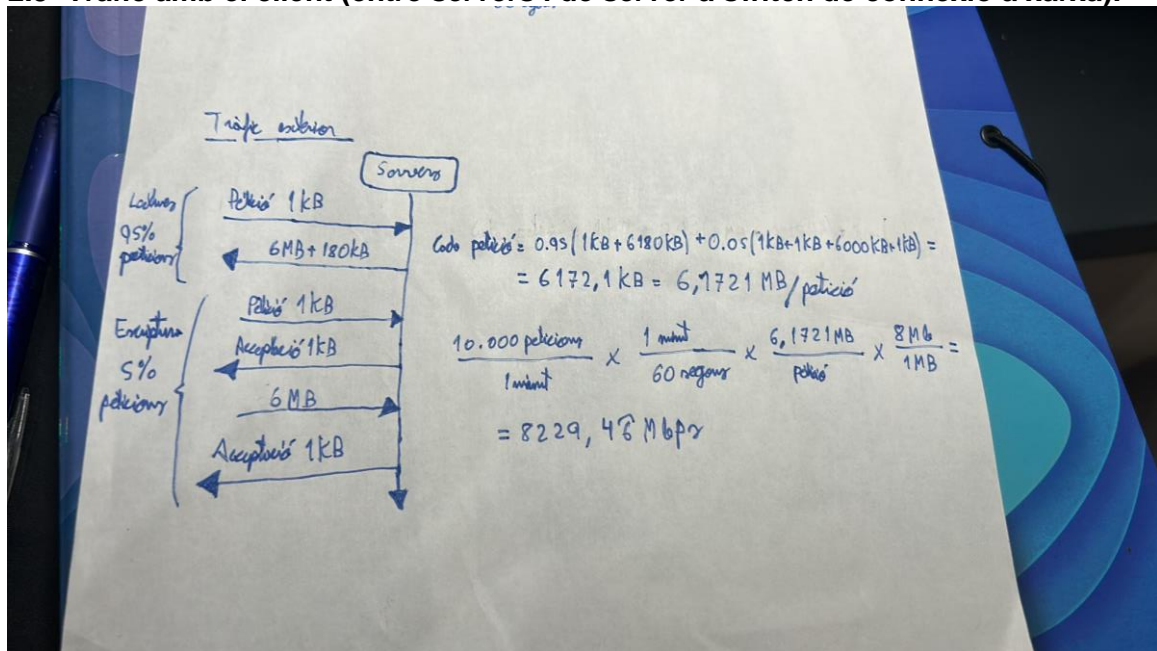 Tràfic exterior
Servers
Lectures
95%
peticions
Petició 1kB
6MB + 180kB
Escriptura
5%
peticions
Petició 1kB
Acceptació 1kB
6 MB
Acceptació 1kB
Cada petició = 0.95(1kB + 6180kB) + 0.05(1kB+1kB+6000kB+1kB) =
= 6172,1 kB = 6,1721 MB/petició
10.000 peticions / 1 minut x 1 minut / 60 segons x 6,1721MB / petició x 8Mb / 1MB =
= 8229,46 Mbps